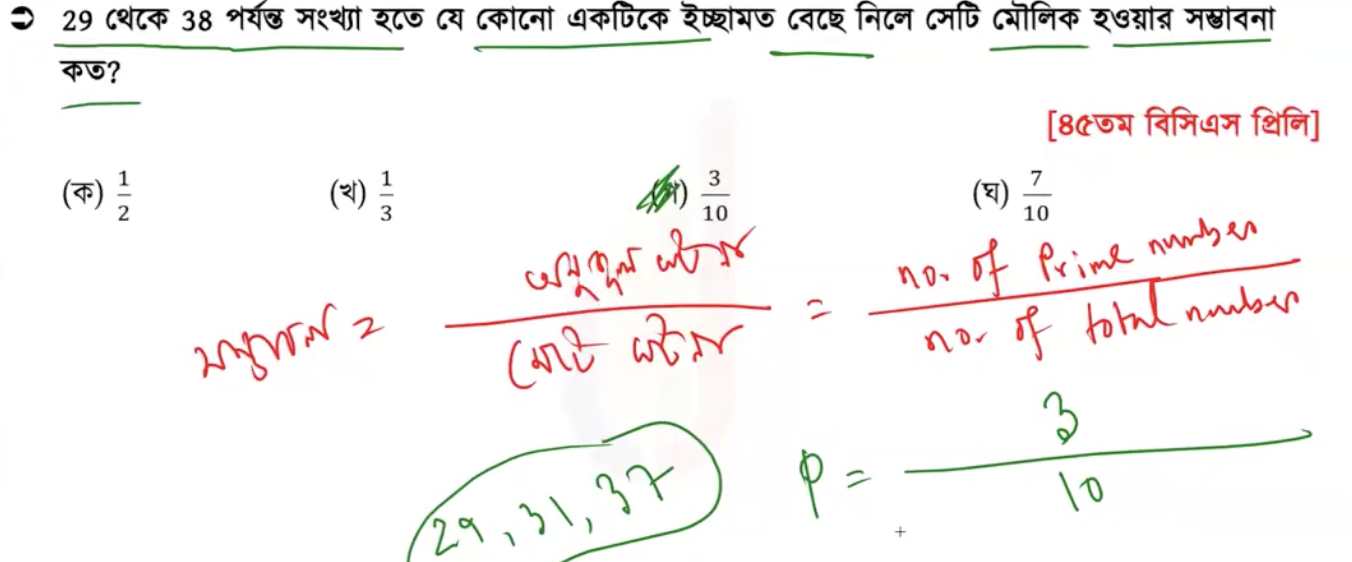 29 থেকে 38 পর্যন্ত সংখ্যা হতে যে কোনো একটিকে ইচ্ছামত বেছে নিলে সেটি মৌলিক হওয়ার সম্ভাবনা
কত?
[৪৫তম বিসিএস প্রিলি]
(ক) 1/2 (খ) 1/3 (গ) 3/10 (ঘ) 7/10
সম্ভাবনা = অনুকূল ঘটনা / মোট ঘটনা = no. of Prime number / no. of total number
29, 31, 37 P = 3/10